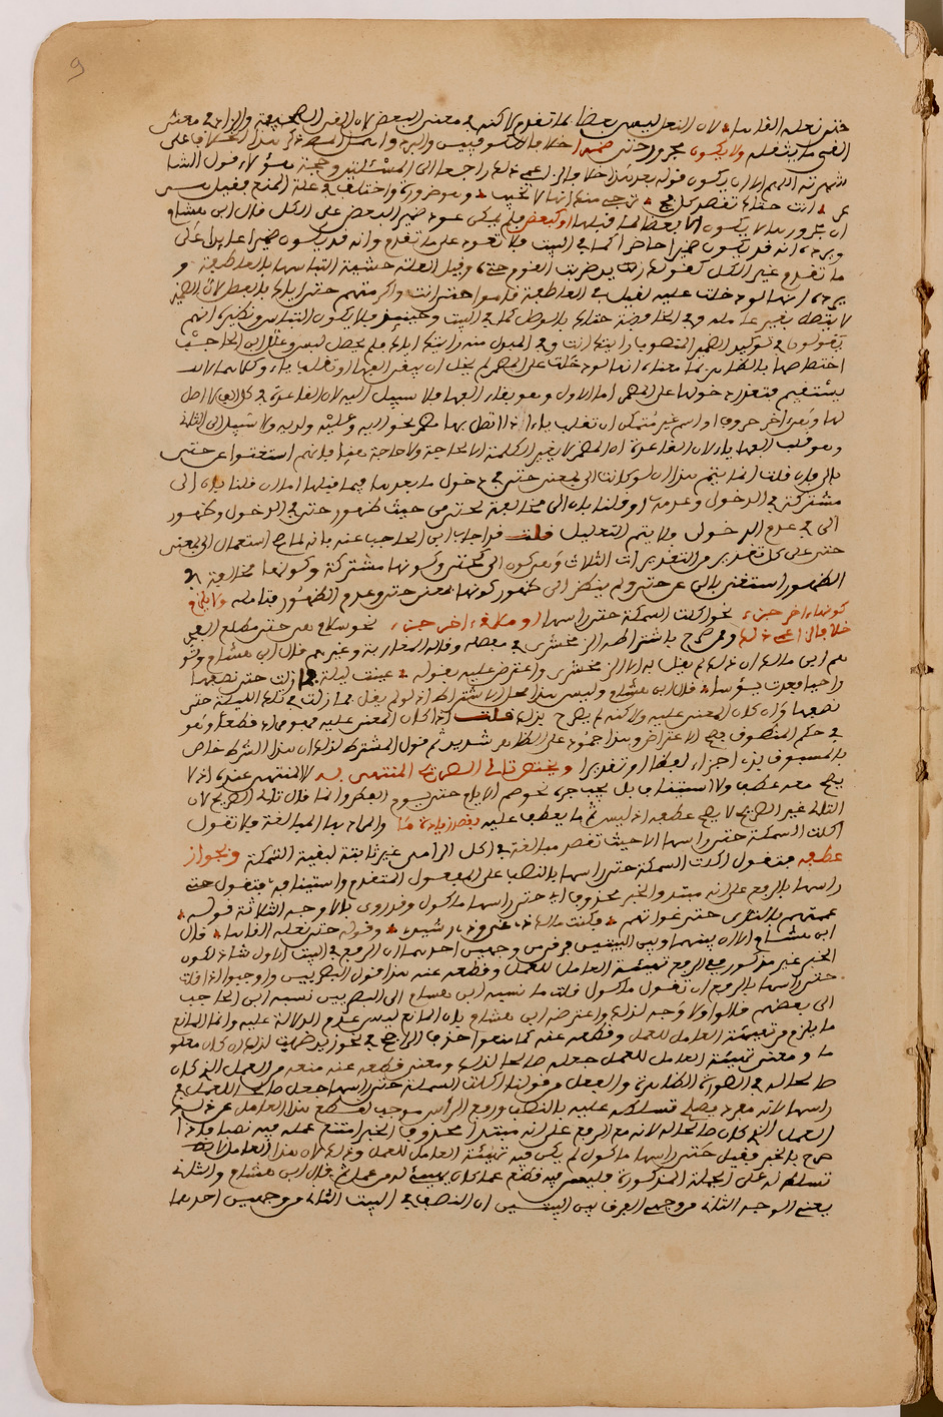 9
حتى نعله القاها لان النعل ليس بعضا لما تقدم لاكنه في معنى البعض لان القى الصحيفة والزاد في معنى
القى ما يثقله ولا يكون مجرور حتى ضميرا خلافا للكوفيين والمبرد
شهرته اللهم الا ان يكون قوله بعد هذا خلافا لزاعمي ذلك راجعا الى المسئلتين وحجة هؤلاء قول الشا
عر انت حتاك تقصد كل فج ترجي منك انها لا تخيب وهو ضرورة واختلف في علة المنع فقيل هي
ان مجرورها لا يكون الا بعضا لما قبلها او كبعض فلم يمكن عود ضمير البعض على الكل قال ابن هشام
ويرده انه قد يكون ضميرا حاضرا كما في البيت فلا تعود على ما تقدم وانه قد يكون ضميرا غائبا عائدا على
ما تقدم غير الكل كقولك زيد ضربت القوم حتاه وقيل العلة خشية التباسها بالعاطفة و
يرده انها لو دخلت عليه لقيل في العاطفة قاموا حتى انت واكرمتهم حتى اياك بالفصل لان الضمير
لا يتصل بغير عامله وفي الخافضة حتاك بالوصل كما في البيت وحينئذ فلا يكون التباس ونظيره انهم
يقولون في توكيد الضمير المنصوب رايتك انت وفي البدل منه رايتك اياك فلم يحصل لبس وعلل ابن الحاجب
اختصاصها بالظاهر بما معناه انها لو دخلت على المضمر لم يخل ان يبقى الفها او تقلب ياء وكلاهما لا
يستقيم فتعذر دخولها على المضمر اما الاول وهو بقاء الفها فلا سبيل اليه لان القاعدة في كل الف لا اصل
لها وهي اخر حرف او اسم غير متمكن ان تقلب ياء اذا اتصل بها مضمر نحو اليه وعليه ولديه ولا سبيل الى الثاني
وهو قلب الفها ياء لان القاعدة ان المضمر لا يغير الكلمة الا لحاجة ولا حاجة هنا فانهم استغنوا عن حتى
بالى فان قلت انما يتم هذا ان لو كانت الى بمعنى حتى في دخول ما بعدها فيما قبلها اما ان قلنا بان الى
مشتركة في الدخول وعدمه او قلنا بان الى مخالفة لحتى من حيث ظهور حتى في الدخول وظهور
الى في عدم الدخول فلا يتم التعليل قلت قد اجاب ابن الحاجب عنه بانه لما صح استعمال الى بمعنى
حتى على كل تقدير من التقديرات الثلاث وهي كون الى كحتى وكونها مشتركة وكونها مخالفة في
الظهور استغنى بالى عن حتى ولم ينظر الى ظهور كونها بمعنى حتى وعدم الظهور فتامله ولا يلزم
كونه اخر جزء نحو اكلت السمكة حتى راسها او ملاقي اخر جزء نحو سلام هي حتى مطلع الفجر
خلافا لزاعمي ذلك وممن صرح باشتراطه الزمخشري في مفصله وقاله المغاربة وغيرهم قال ابن هشام وتو
هم ابن مالك ان ذلك لم يقل به الا الزمخشري واعترض عليه بقوله عينت ليلة فما زلت حتى نصفها
راجيا فعدت يؤسا قال ابن هشام وليس هذا محل الاشتراط اذ لم يقل فما زلت في تلك الليلة حتى
نصفها وان كان المعنى عليه ولاكنه لم يصرح به قلت اذا كان المعنى عليه فهو مراد قطعا وهو
في حكم المنطوق فصح الاعتراض وهذا جمود على الظاهر شديد ثم قول المشترط لذلك ان هذا الشرط خاص
بالمسبوق بذي اجزاء لفظا او تقديرا ويختص تالي الصريح المنتهى به لا المنتهى عنده اذ لا
يصح معه عطف ولا استيناف بل يجب جره نحو صم الايام حتى يوم الفطر وانما قال تالي الصريح لان
التالي غير الصريح لا يصح عطفه اذ ليس ثم ما يعطف عليه بقصد زيادة ما والمراد بها المبالغة فلا تقول
اكلت السمكة حتى راسها الا حيث تقصد مبالغة في اكل الراس غير ثابتة لبقية السمكة وبجواز
عطفه فتقول اكلت السمكة حتى راسها بالنصب على المفعول المتقدم واستينافه فتقول حتى
راسها بالرفع على انه مبتدا والخبر محذوف اي حتى راسها ماكول وقد روى بالاوجه الثلاثة قوله
عممتهم بالندى حتى غواتهم فكنت مالك ذي غي وذي رشد وقوله حتى نعله القاها قال
ابن هشام الا ان بينهما وبين البيتين فرق من وجهين احدهما ان الرفع في البيت الاول شاذ لكون
الخبر غير مذكور ففي الرفع تهيئة العامل للعمل وقطعه عنه هذا قول البصريين واوجبوا اذا قلت
حتى راسها بالرفع ان تقول ماكول قلت ما نسبه ابن هشام الى البصريين نسبه ابن الحاجب
الى بعضهم قالوا ولا وجه لذلك واعترضه ابن هشام بان المانع ليس عدم الدلالة عليه وانما المانع
ما يلزم من تهيئة العامل للعمل وقطعه عنه كما منعوا حذف الراجح في نحو زيد ضربت لذلك ان كان معلو
ما ومعنى تهيئة العامل للعمل جعله صالحا لذلك ومعنى قطعه عنه منعه من العمل الذي كان
صالحا له في الصورة الظاهرة والفعل من قولنا اكلت السمكة حتى راسها جعل صالحا للعمل في
راسها لانه مفرد يصلح تسلطه عليه بالنصب ورفع الراس موجب لقطع هذا العامل عن ذلك
العمل الذي كان صالحا له لانه مع الرفع على انه مبتدا محذوف الخبر امتنع عمله فيه نصبا فاذا
صرح بالخبر فقيل حتى راسها ماكول لم يكن فيه تهيئة العامل للعمل وذلك لان هذا العامل لا يصح
تسلطه على الجملة المذكورة فليس فيه قطع عما كان يهيئ له من عمل ثم قال ابن هشام والثاني
يعني الوجه الثاني من وجهي الفرق بين البيتين ان النصب في البيت الثاني من وجهين احدهما